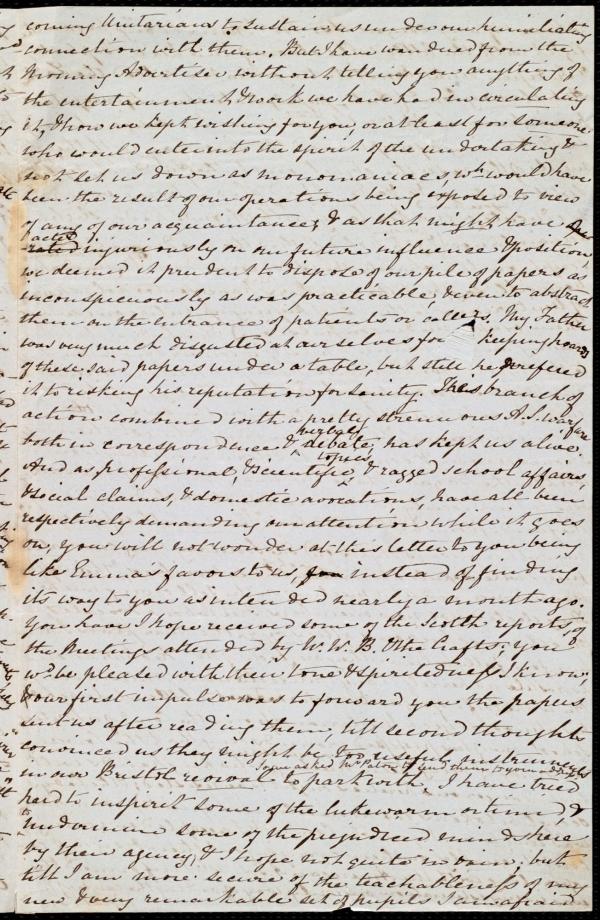 coming Unitarians to sustain us under our humiliating
connection with them. But I have wandered from the
Morning Advertiser without telling you anything of
the entertainment & work we have had in circulating
it, & how we kept wishing for you, or at least for someone
who would enter into the spirit of the undertaking &
not set us down as monomaniacs, wh. would have
been the result of our operations being exposed to view
of any of our acquaintance; & as that might have
acted injuriously on our future influence & position,
we deemed it prudent to dispose of our pile of papers as
inconspicuously as was practicable, & even to abstract
them on the entrance of patients or callers. My Father
was very much disgusted at ourselves for keeping hoards
of these said papers under a table, but still he preferred
it to risking his reputation for sanity. This branch of
action combined with a pretty strenuous A.S. warfare
both in correspondence & verbal debate, has kept us alive.
And as professional, & scientific topics, & ragged school affairs,
& social claims, & domestic avocations, have all been
respectively demanding our attention while it goes
on, you will not wonder at this letter to you being
like Emma's favors to us, instead of finding
its way to you as intended nearly a month ago.
You have I hope received some of the Scotch reports, of
the Meetings attended by W. W. B. & the Crafts; you
wd. be pleased with their tone & spiritedness I know,
& our first impulse was to forward you the papers
sent us after reading them, till second thoughts
convinced us they might be too useful instruments
in our Bristol revival to part with,
I have tried
hard to inspirit some of the lukewarm ones in it, &
to undermine some of the prejudiced minds here
by their agency, & I hope not quite in vain; but
till I am more secure of the teachableness of my
new & very remarkable set of pupils I am afraid